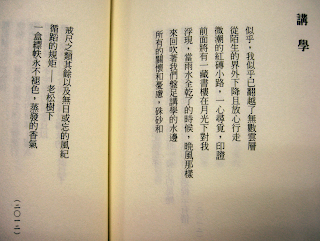 講學
似乎,我似乎已翻越了無數雲層
從陌生的界外下降且放心行走
微潮的紅磚小路,一心尋覓,印證
前面將有一藏書樓在月光下對我
浮現,當雨水全乾了的時候,晚風那樣
來回吹著我們盤足講學的水邊
所有的關懷和憂慮,硃砂和
戒尺之類其餘以及無日或忘的風紀
循蹈的規矩——老松樹下
一盒標軼永不褪色,蒸發的香氣